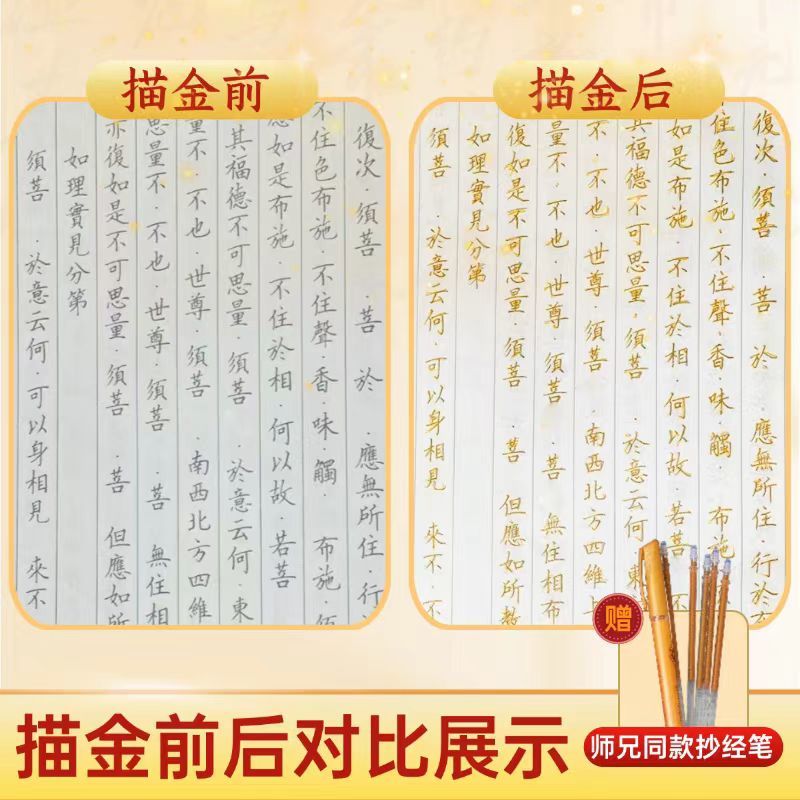 描金前
描金后
復次．須菩　．菩　於　．應無所住．行
不住色布施．不住聲．香．味．觸．　布施．
如是布施．不住於相．何以故．若菩
其福德不可思量．須菩　．於意云何．東
量不．不也．世尊．須菩　．南西北方四維
思量不．不也．世尊．須菩　．菩　無住相
亦復如是不可思量．須菩　．菩　但應如所
如理實見分第
須菩　．於意云何．可以身相見　來不
復次．須菩　．菩　於　．應無所住．行於
住色布施．不住聲．香．味．觸．　布施
如是布施．不住於相．何以故．若菩　不
其福德不可思量．須菩　．於意云何．東
不．不也．世尊．須菩　．南西北方四維
量不．不也．世尊．須菩　．菩　無住相布
復如是不可思量．須菩　．菩　但應如所教
如理實見分第
須菩　．於意云何．可以身相見　來不．不
赠
描金前后对比展示
师兄同款抄经笔